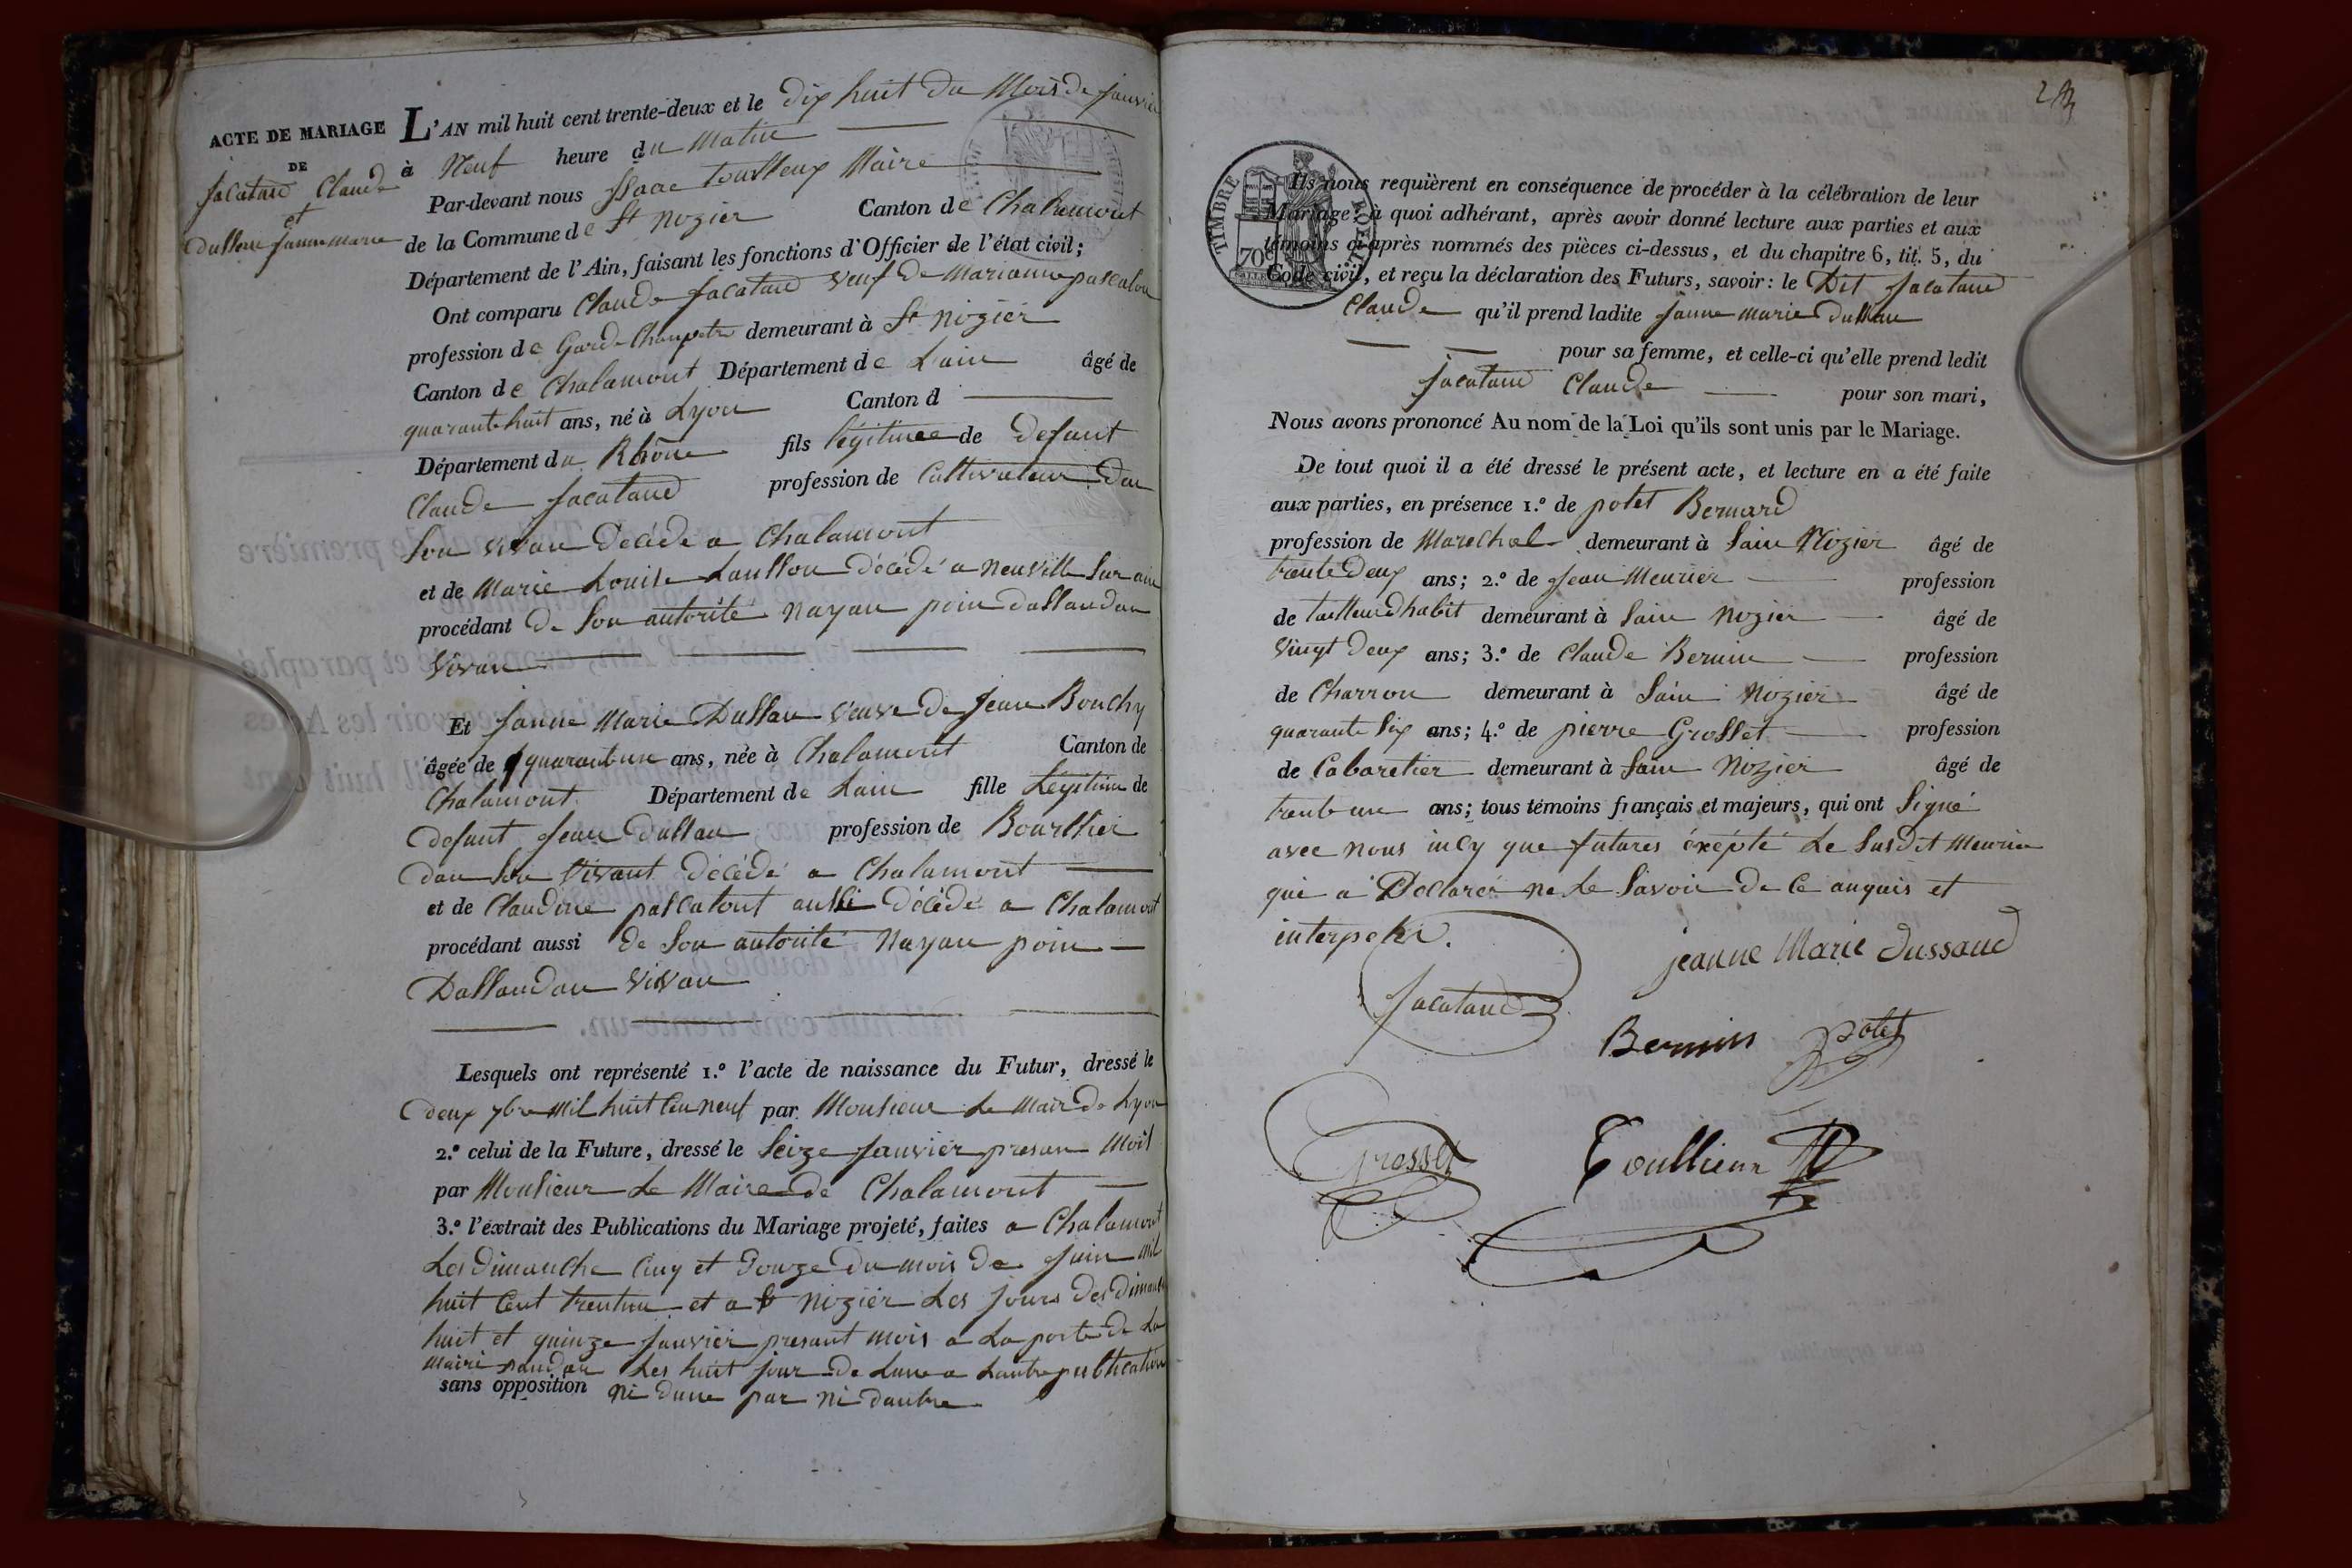 ACTE DE MARIAGE
DE
Jacataud Claude
et
Dussau Janne marie
L'AN mil huit cent trente-deux et le dix huit du Mois de Janvier
à Neuf heure du Matin
Par-devant nous Isaac toullieux Maire
de la Commune de St Nizier Canton de Chalamont
Département de l'Ain, faisant les fonctions d'Officier de l'état civil;
Ont comparu Claude Jacataud veuf de Marianne pascalon
profession de Garde Champetre demeurant à St Nizier
Canton de Chalamont Département de Lain âgé de
quarante huit ans, né à Lyon Canton d
Département du Rhône fils légitime de defunt
Claude Jacataud profession de Cultivateur dan
son vivan décédé a Chalamont
et de Marie Louise Lausson décédé a Neuville sur ain
procédant de son autorité nayan poin dassandan
vivan
Et Janne Marie Dussau veuve de Jean Bouchy
âgée de quarantun ans, née à Chalamont Canton de
Chalamont Département de Lain fille Légitime de
defunt Jean Dussau profession de Bourllier
dan son vivant décédé a Chalamont
et de Claudine pascalout aussi décédé a Chalamont
procédant aussi de son autorité Nayan poin
Dassandan vivan
Lesquels ont représenté 1.º l'acte de naissance du Futur, dressé le
deux 7bre Mil huit Cen neuf par Monsieur Le Mair de Lyon
2.º celui de la Future, dressé le Seize Janvier presan Mois
par Monsieur Le Maire de Chalamont
3.º l'extrait des Publications du Mariage projeté, faites a Chalamont
Les dimanche Cinq et Douze du mois de Juin mil
huit Cent trentun et a St Nizier Les jours des dimanche
huit et quinze Janvier presant mois a La porte de La
Mairi pandan Les huit jour de Lune a Lautre publication
sans opposition ni dune par ni dautre
Ils nous requièrent en conséquence de procéder à la célébration de leur
Mariage; à quoi adhérant, après avoir donné lecture aux parties et aux
témoins ci-après nommés des pièces ci-dessus, et du chapitre 6, tit. 5, du
Code civil, et reçu la déclaration des Futurs, savoir: le Dit Jacataud
Claude qu'il prend ladite Janne marie Dussau
pour sa femme, et celle-ci qu'elle prend ledit
Jacataud Claude pour son mari,
Nous avons prononcé Au nom de la Loi qu'ils sont unis par le Mariage.
De tout quoi il a été dressé le présent acte, et lecture en a été faite
aux parties, en présence 1.º de potet Bernard
profession de Marechal demeurant à Sain Nizier âgé de
trente Deux ans; 2.º de Jean Meunier profession
de tailleur dhabit demeurant à Sain Nizier âgé de
vingt Deux ans; 3.º de Claude Bernin profession
de Charron demeurant à Sain Nizier âgé de
quarante Six ans; 4.º de pierre Grosset profession
de Cabaretier demeurant à Sain Nizier âgé de
trentun ans; tous témoins français et majeurs, qui ont Signé
avec nous insy que futures éxépté Le Susdit Meunier
qui a Déclarer ne Le Savoir de ce anquis et
interpeler.
jeanne Marie dussaud
Jacataud
Bernin potet
Grosset Toullieux
TIMBRE ROYAL
70c